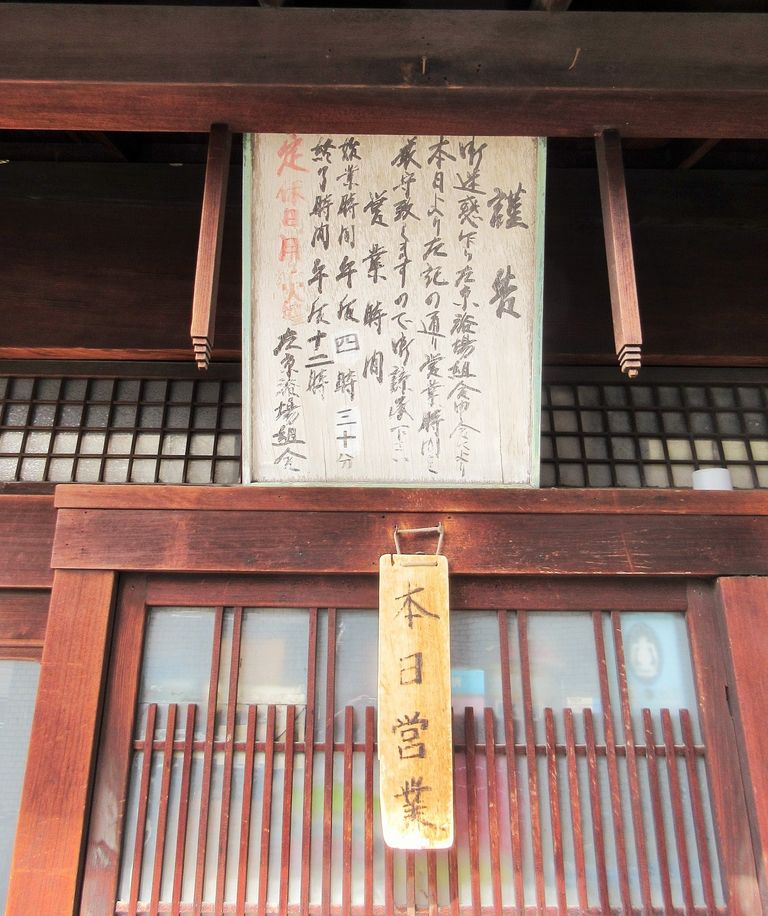 謹告
御迷惑乍ら左京浴場組合申合により
本日より左記の通り営業時間を
厳守致しますので御諒承下さい
営業時間
始業時間 午后 四時三十分
終了時間 午后十二時
定休日月・火
左京浴場組合
本日営業